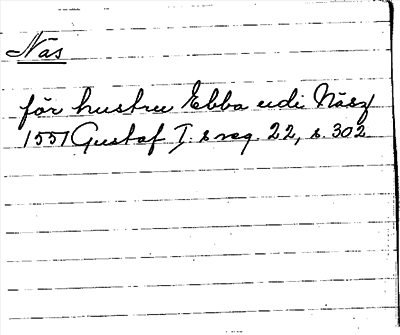 Näs
för hustru Ebba udi Näsz
1551 Gustaf I:s reg. 22, s. 302